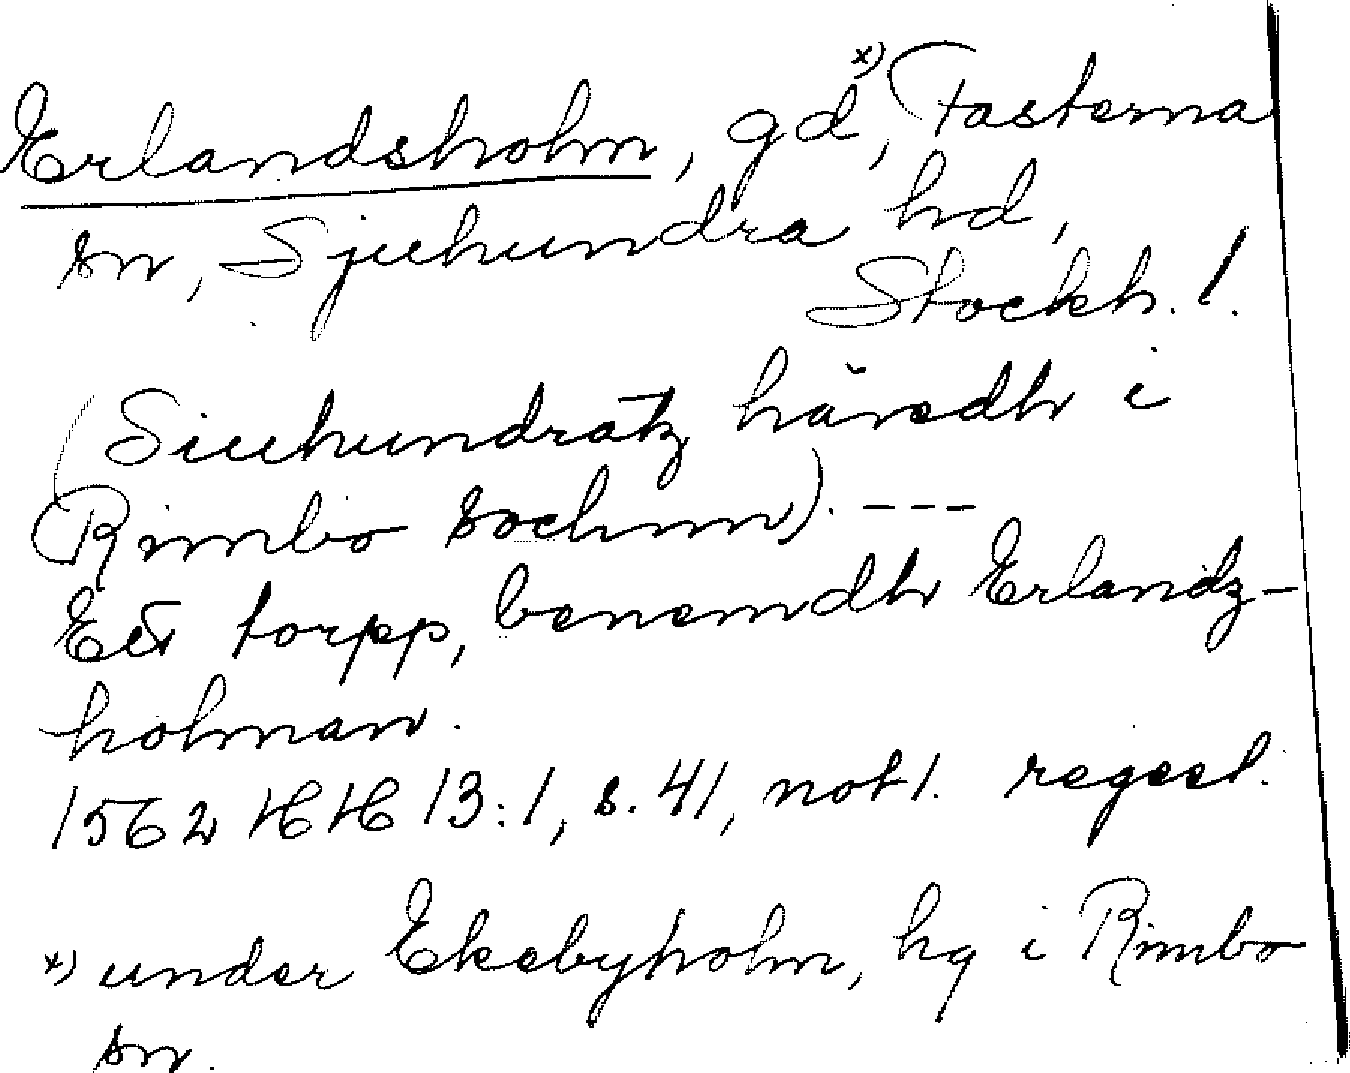 Erlandsholm, gd *), Fasterna
sn, Sjuhundra hd,
Stockh. l.
(Siuhundratz häredh i
Rimbo sochnn). ---
Eet torpp, benemdh Erlandz-
holman.
1562 HH 13:1, s. 41, not 1. regest.
*) under Ekebyholm, hg i Rimbo
sn.